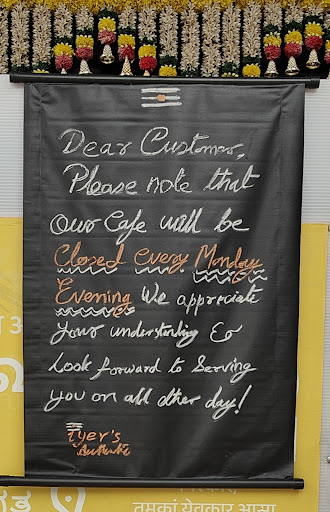 Dear Customer,
Please note that
Our Cafe will be
Closed Every Monday
Evening We appreciate
your understanding &
Look forward to Serving
you on all other day!
Iyer's
तुमकां येवकार आसा